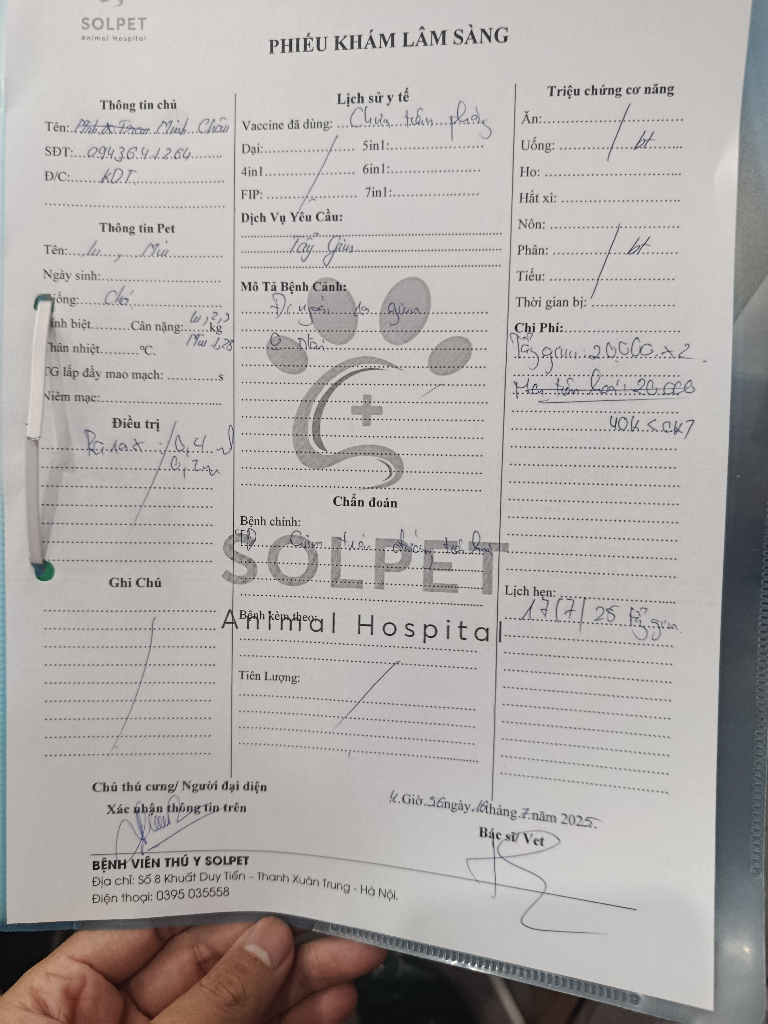 SOLPET
Animal Hospital
PHIẾU KHÁM LÂM SÀNG
Thông tin chủ
Tên: Minh Châu
SĐT: 0943641264
Đ/C: KDT
Thông tin Pet
Tên: lu, Miu
Ngày sinh:
Giống: Chó
Cân nặng: lu, 2,3 kg
Miu 1,28
Thân nhiệt °C.
TG lấp đầy mao mạch: s
Niêm mạc:
Điều trị
0,4 ml
0,2 ml
Ghi Chú
Lịch sử y tế
Vaccine đã dùng: Chưa tiêm phòng
Dại: 5in1:
4in1 6in1:
FIP: 7in1:
Dịch Vụ Yêu Cầu:
Tẩy Giun
Mô Tả Bệnh Cảnh:
Đi ngoài ra giun
Chẩn đoán
Bệnh chính:
SOLPET
Animal Hospital
Bệnh kèm theo:
Tiên Lượng:
Triệu chứng cơ năng
Ăn:
Uống: bt
Ho:
Hắt xì:
Nôn:
Phân: bt
Tiểu:
Thời gian bị:
Chi Phí:
Tẩy giun: 20.000 x 2
20.000
40K < CK7
Lịch hẹn:
17/7/25 Tẩy giun
Chủ thú cưng/ Người đại diện
Xác nhận thông tin trên
Giờ 56 ngày 16 tháng 7 năm 2025
Bác sĩ/ Vet
BỆNH VIỆN THÚ Y SOLPET
Địa chỉ: Số 8 Khuất Duy Tiến - Thanh Xuân Trung - Hà Nội.
Điện thoại: 0395 035558